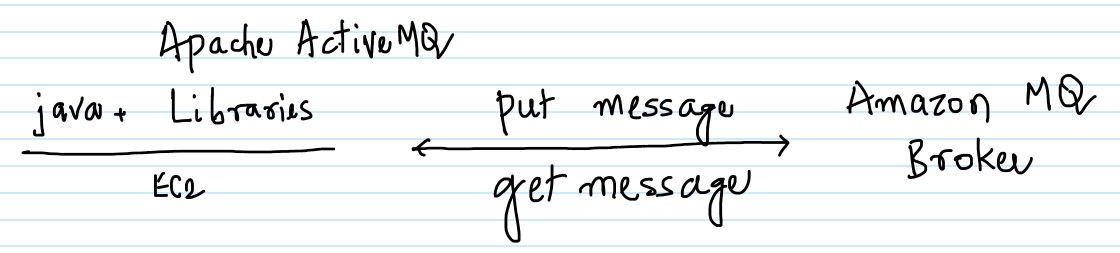 Apache ActiveMQ
java + Libraries
EC2
put message
get message
Amazon MQ
Broker